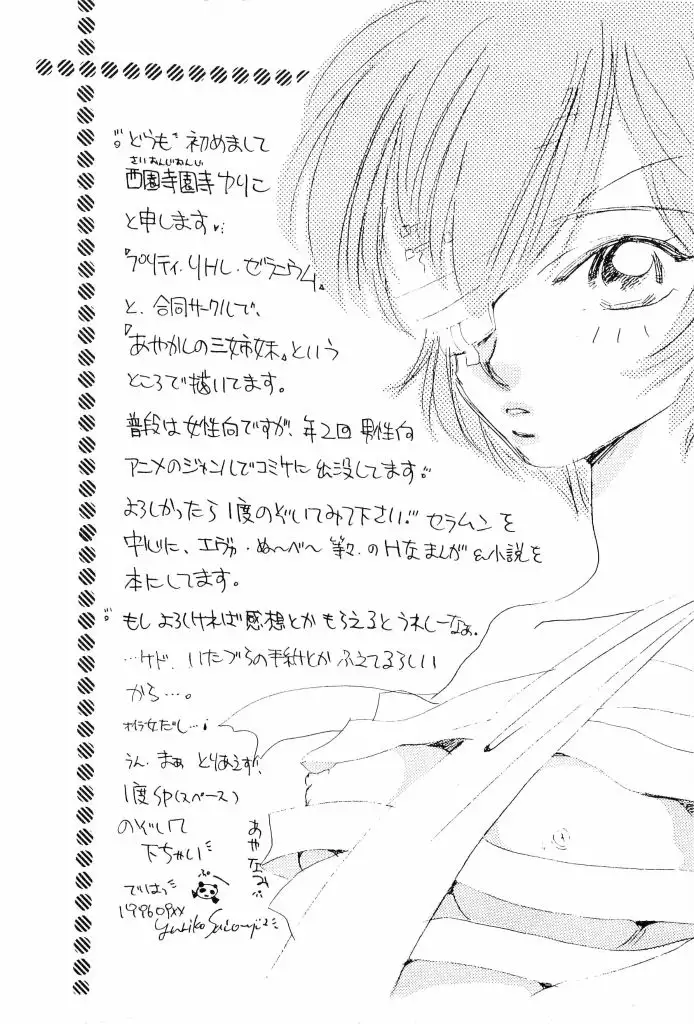 どうも 初めまして
さいおんじおんじ
西園寺園寺ゆりこ
と申します
『プリティ・リトル・ゼラニウム』
と、合同サークルで、
『あやかしの三姉妹』という
ところで描いてます。
普段は女性向ですが、年2回 男性向
アニメのジャンルでコミケに出没してます。
よろしかったら 1度のぞいてみて下さい。 セラムンを
中心に、エヴァ・ぬ〜べ〜 等々.のHなまんが&小説を
本にしてます。
もし よろしければ感想とか もらえるとうれしーなぁ.
…ケド、いたづらの手紙とか ふえてるらしい
から…。
オイラ女だし…!
うん. まぁ とりあえず、
1度SP(スペース)
のぞいて
下ちゃい
ぷー
ではっ
199609××
Yuriko Saionji
あやなみ